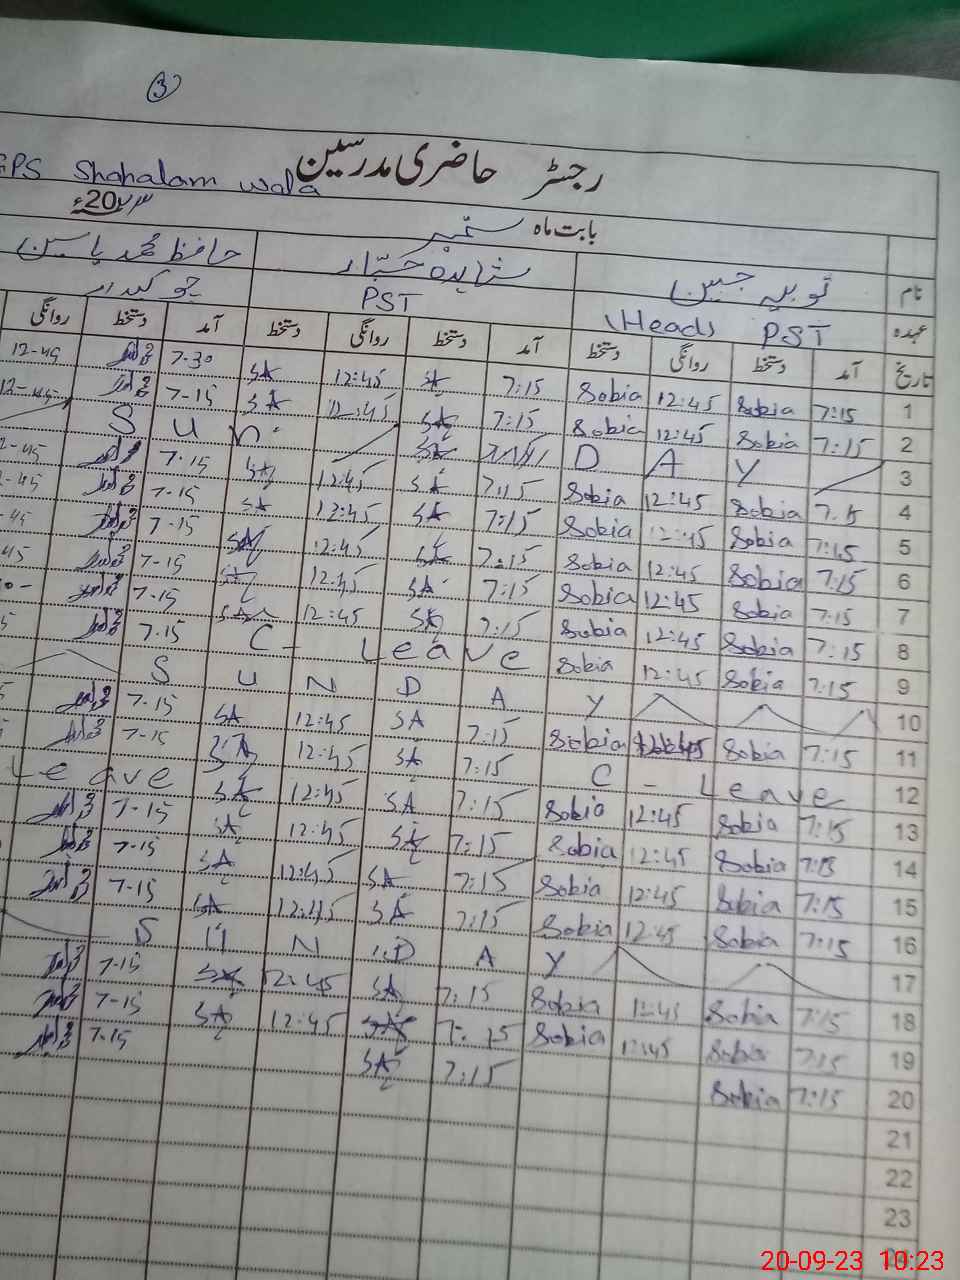 3
رجسٹر حاضری مدرسین
GPS Shahalam wala
بابت ماہ ستمبر 20۲۳ء
نام ثوبیہ جبین شاہدہ جبار حافظ محمد یاسین
عہدہ (Head) PST PST چوکیدار
تاریخ آمد دستخط روانگی دستخط آمد دستخط روانگی دستخط آمد دستخط روانگی
1 7:15 Sobia 12:45 Sobia 7:15 SA 12:45 SA 7-30 12-45
2 7:15 Sobia 12:45 Sobia 7:15 SA 12:45 SA 7-15 12-45
3 S u n D A Y
4 7:15 Sobia 12:45 Sobia 7:15 SA 12:45 SA 7-15 2-45
5 7:15 Sobia 12:45 Sobia 7:15 SA 12:45 SA 7-15 2-45
6 7:15 Sobia 12:45 Sobia 7:15 SA 12:45 SA 7-15 -45
7 7:15 Sobia 12:45 Sobia 7:15 SA 12:45 SA 7-15 45
8 7:15 Sobia 12:45 Sobia 7:15 SA 12:45 SA 7-15
9 7:15 Sobia 12:45 Sobia C - Leave 7-15
10 S U N D A Y
11 7:15 Sobia 12:45 Sobia 7:15 SA 12:45 SA 7-15
12 C - Leave 7:15 SA 12:45 SA 7-15
13 7:15 Sobia 12:45 Sobia 7:15 SA 12:45 SA Leave
14 7:15 Sobia 12:45 Sobia 7:15 SA 12:45 SA 7-15
15 7:15 Sobia 12:45 Sobia 7:15 SA 12:45 SA 7-15
16 7:15 Sobia 12:45 Sobia 7:15 SA 12:45 SA 7-15
17 S U N D A Y
18 7:15 Sobia 12:45 Sobia 7:15 SA 12:45 SA 7-15
19 7:15 Sobia 12:45 Sobia 7:15 SA 12:45 SA 7-15
20 7:15 Sobia 7:15 SA 7-15
21
22
23
20-09-23 10:23